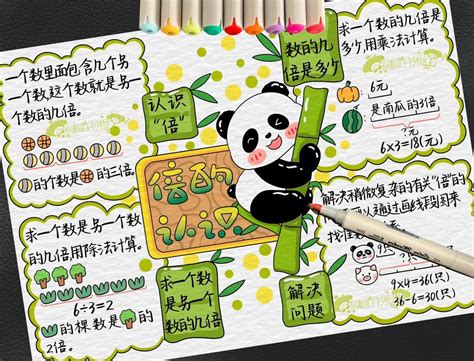 一个数里面包含几个另
一个数,这个数就是另一
个数的几倍。
的个数是 的三倍。
认识
“倍”
求一个数的几倍是
多少,用乘法计算。
6元
是南瓜的3倍
?元
6×3=18(元)
数的几
倍是多少
倍的
认识
求一个数是另一个数
的几倍用除法计算。
6÷3=2
的棵数是 的
2倍。
求一个数
是另一个
数的几倍
解决
问题
解决稍微复杂的有关“倍”的
通过画线段图来
9×4=36(只)
36-6=30(只)